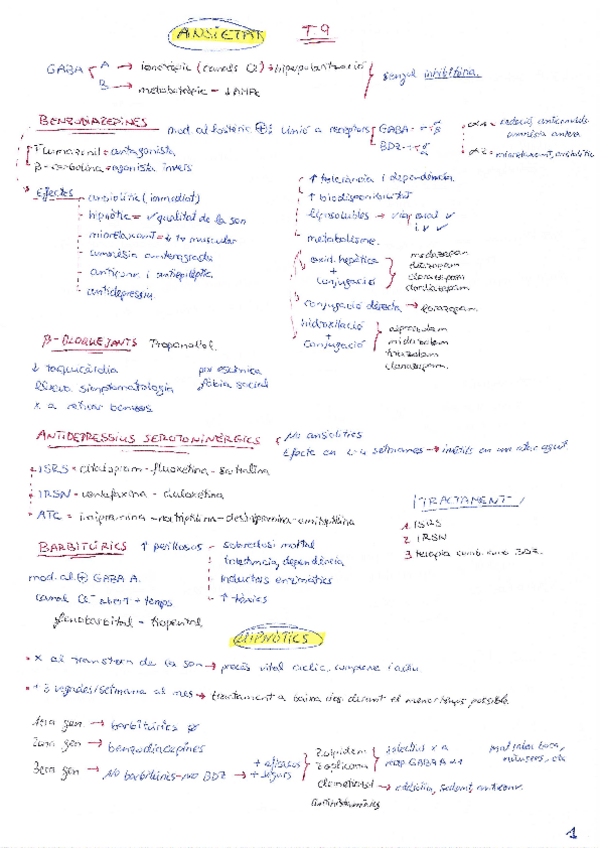 ANSIETAT T9
GABA A → ionotròpic (canals Cl) → hiperpolarització
B → metabotròpic - ↓AMPc
senyal inhibitòria.
BENZODIAZEPINES mod. al·lostèric ⊕: unió a receptors GABA
BDZ
Flumazenil = antagonista
β-carbolina = agonista invers
Efectes - ansiolític (immediat)
- hipnòtic = ✓ qualitat de la son
- miorelaxant = ↓ to muscular
- amnèsia anterògrada
- anticonv. i antiepilèptic
- antidepressiu
↑ tolerància i dependència
↑ biodisponibilitat
liposolubles → via oral ✓
i.v ✓
metabolisme.
oxid. hepàtica
+
conjugació
medazepam
diazepam
clorazepam
clordiazepam
conjugació directa → lorazepam.
hidroxilació
+
conjugació
alprazolam
midazolam
triazolam
clonazepam.
β-BLOQUEJANTS Propanolol.
↓ taquicàrdia
millora simptomatologia fòbia social
x a retirar
ANTIDEPRESSIUS SEROTONINÈRGICS No ansiolítics
Efecte en 2-4 setmanes → inútils en un atac agut.
ISRS = citalopram - fluoxetina - sertralina
IRSN = venlafaxina - duloxetina
ATC = imipramina - nortriptilina - desipramina - amitriptilina
¡TRACTAMENT!
1 ISRS
2 IRSN
3 teràpia comb. amb BDZ.
BARBITÚRICS ↑ perillosos - sobredosi mortal
tolerància, dependència
inductors enzimàtics
↑ tòxics
mod. al. ⊕ GABA A.
canal Cl⁻ obert + temps
fenobarbital - tiopental
HIPNÒTICS
x al transtorn de la son → procés vital cíclic, complexe i actiu
+ 3 vegades/setmana al mes → tractament a baixa dosi durant el menor temps possible
1era gen → barbitúrics
2ona gen → benzodiacepines
3era gen → No barbitúrics - no BDZ → + eficaços
+ segurs
Zolpidem
Zopiclona
selectius x a
recep GABA A α1
clometiazol → addictiu, sedant, anticonv.
antihistamínics
1